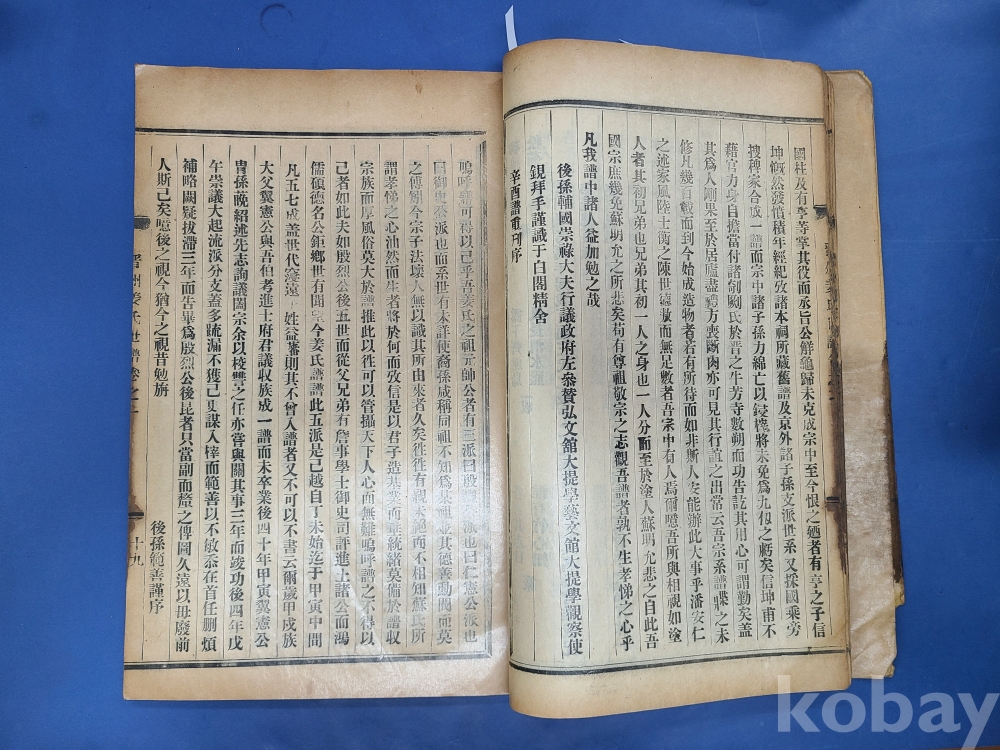 國柱及有亨等掌其役而丞旨公鮮龜歸未克成宗中至今恨之廼者有亨之子信
坤慨然發憤積年經紀攷諸本祠所藏舊譜及京外諸子孫支派世系又採國乘旁
搜稗家合成一譜而宗中諸子孫力綿亡以鋟榟將未免爲九仞之虧矣信坤甫不
藉官力身自擔當付諸剞劂氏於晋之牛芳寺數朔而功告訖其用心可謂勤矣盖
其爲人剛果至於居廬盡禮方喪斷肉亦可見其行誼之出常云吾宗系譜牒之未
修凡幾百載而到今始成造物者若有所待而如非斯人安能辦此大事乎潘安仁
之述家風陸士衡之陳世德
人者其初兄弟也兄弟其初一人之身也一人分而至於塗人蘇明允悲之自此吾
國宗庶幾免蘇明允之所悲矣苟有尊祖敬宗之志觀吾譜者孰不生孝悌之心乎
凡我譜中諸人益加勉之哉
後孫輔國崇祿大夫行議政府左參贊弘文館大提學藝文館大提學觀察使
鋧拜手謹識于白閣精舍
辛酉譜重刊序
嗚呼譜可得以己乎吾姜氏之祖元帥公者有三派曰殷烈公派也曰仁憲公派也
曰御史公派也而系世有未詳使裔孫成稱同祖不知爲某祖並其德善勳閥而莫
之傳焉今宗子法壞人無以識其所由來者久矣徃徃有親未絕而不相知蘇氏所
謂孝悌之心油然而生者將於何而攷信是以君子造基業而垂統緖莫備於譜収
宗族而厚風俗莫大於譜推此以徃可以管攝天下人心而無難嗚呼譜之不得以
己者如此夫如殷烈公後五世而從父兄弟有詹事學士御史司評進士諸公而鴻
儒碩德名公鉅鄕世有聞望今姜氏譜譜此五派是己越自丁未始迄于甲寅中間
凡五七成盖世代窵遠一姓益蕃則其不曾入譜者又不可以不書云爾歲甲戌族
大父翼憲公與吾伯考進士府君議収族成一譜而未卒業後四十年甲寅翼憲公
胄孫晩紹述先志詢議闔宗余以校讐之任亦嘗與關其事三年而竣功後四年戊
午崇議大起流派分支蓋多疏漏不獲已更謀入榟而範善以不敏忝在首任刪煩
補略闕疑拔滯三年而告畢爲殷烈公後昆者只當副而釐之傳圖久遠以毋廢前
人斯己矣噫後之視今猶今之視昔勉旃
後孫範善謹序
晋州姜氏世譜卷之一
十九
kobay